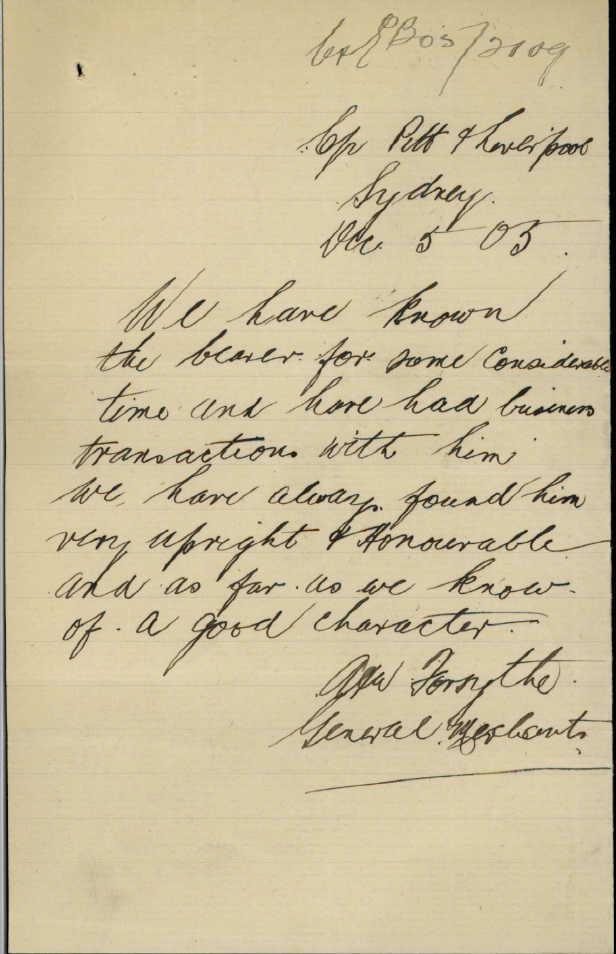 05/2109
Cp Pitt & Liverpool
Sydney.
Dec 5 05.
We have known
the bearer for some Considerable
time and have had business
transactions with him
we have always found him
very upright & Honourable
and as far as we know
of a good character.
Forsythe.
General Merchants